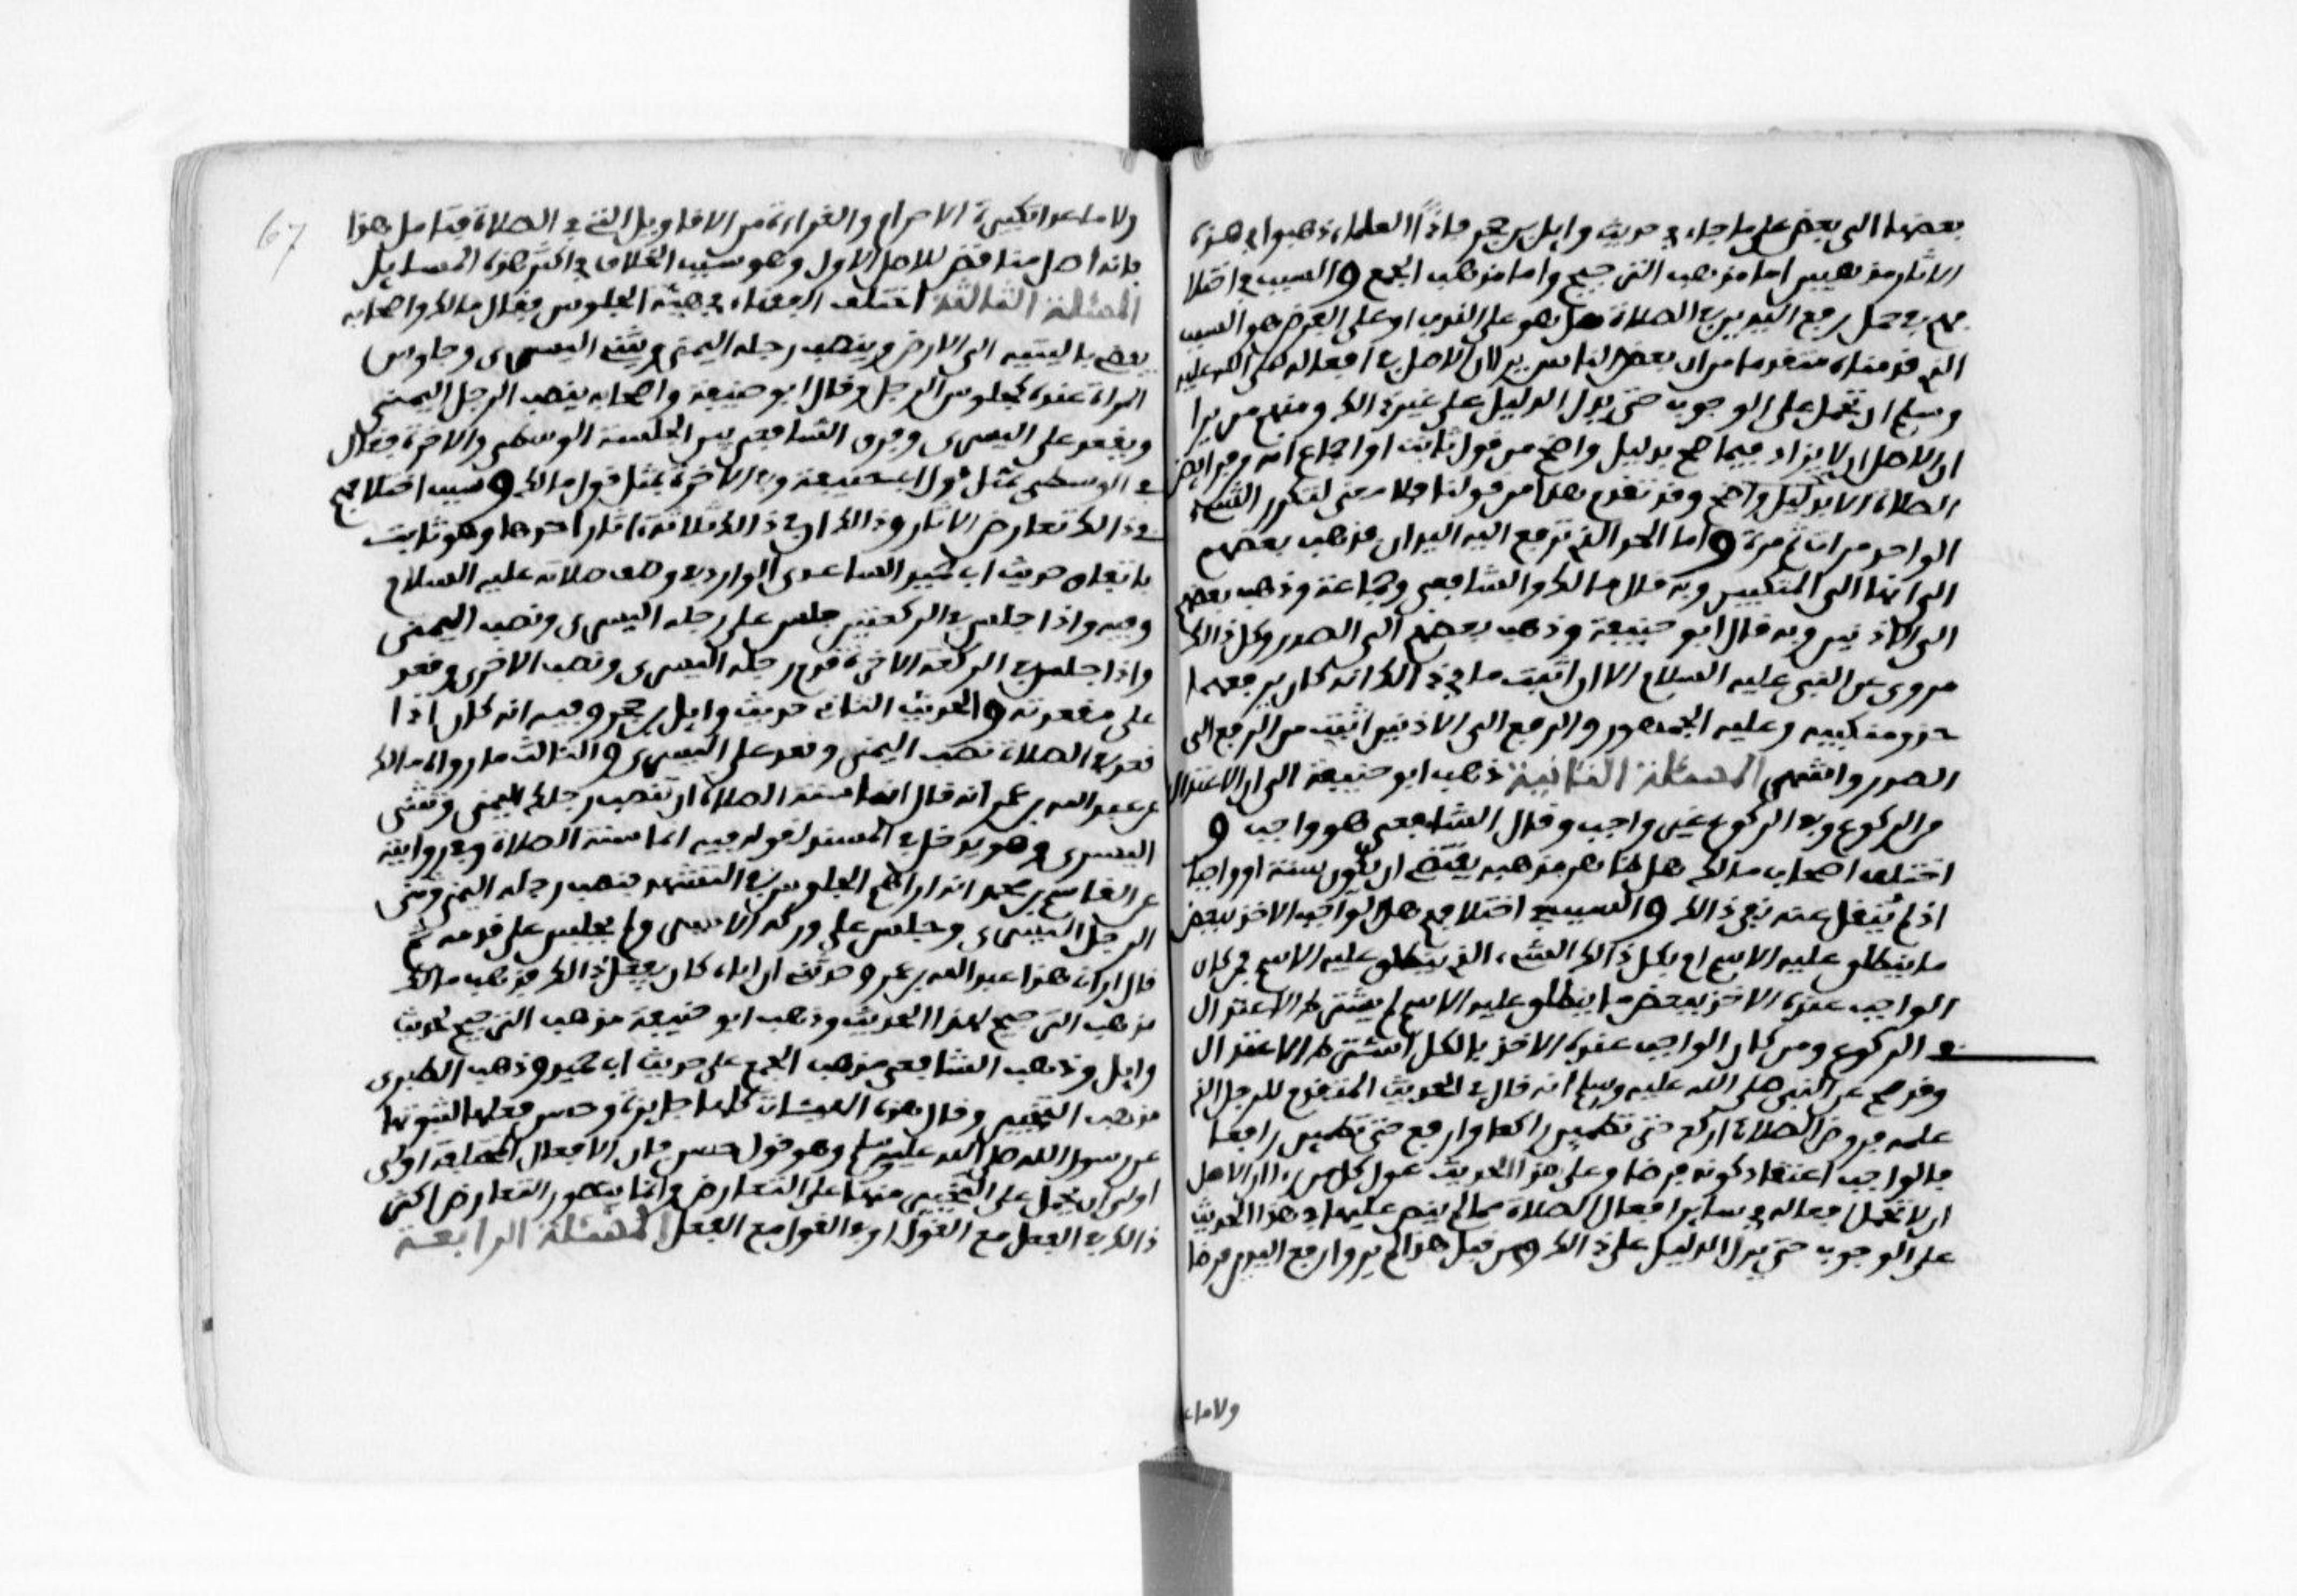 بعضها الى بعض على ما جاء في حديث وايل بن حجر فاذا العلماء ذهبوا في هذه
الاثار مذهبين اما مذهب الترجيح واما مذهب الجمع والسبب في اختلا
فهم في حمل رفع اليدين في الصلاة هل هو على الندب او على الفرض هو السبب
الذي قدمناه متقدما من ان بعض الناس يرى ان الاصل في افعاله صلى الله عليه
وسلم ان تحمل على الوجوب حتى يدل الدليل على غير ذالك ومنهم من يرا
ان الاصل ان لا يزاد فيما صح بدليل واضح من قول ثابت او اجماع انه من فرايض
الصلاة الا بدليل واضح وقد تقدم هذا من قولنا فلا معنى لتكرر الشيء
الواحد مرات ثم مرة واما الحد الذي ترفع اليه اليدان فذهب بعضهم
الى انها المنكبين وبه قال مالك والشافعي وجماعة وذهب بعضهم
الى الاذنين وبه قال ابو حنيفة وذهب بعضهم الى الصدر وكل ذالك
مروي عن النبي عليه السلام الا ان اثبت ما في ذالك انه كان يرفعهما
حذو منكبيه وعليه الجمهور والرفع الى الاذنين اثبت من الرفع الى
الصدر واشهر المسئلة الثانية ذهب ابو حنيفة الى ان الاعتدال
من الركوع وفي الركوع غير واجب وقال الشافعي هو واجب و
اختلف اصحاب مالك هل ظاهر مذهبه يقتضي ان يكون سنة او واجبا
اذ لم ينقل عنه نص في ذالك والسبب في اختلافهم هل الواجب الاخذ ببعض
ما ينطلق عليه الاسم ام بكل ذالك الشيء الذي ينطلق عليه الاسم فمن كان
الواجب عنده الاخذ ببعض ما ينطلق عليه الاسم لم يشترط الاعتدال
في الركوع ومن كان الواجب عنده الاخذ بالكل اشترط الاعتدال
وقد صح عن النبي صلى الله عليه وسلم انه قال في الحديث المتقدم للرجل الذي
علمه فروض الصلاة اركع حتى تطمين راكعا وارفع حتى تطمين رافعا
فالواجب اعتقاد كونه فرضا وعلى هذا الحديث عول كل من را ان الاصل
ان لا تحمل افعاله في ساير افعال الصلاة مما لم ينص عليها في هذا الحديث
على الوجوب حتى يدل الدليل على ذالك ومن قبل هذا لم يروا رفع اليدين فرضا
ولا ما عدا
67
ولا ما عدا تكبيرة الاحرام والقراءة من الاقاويل التي في الصلاة فتامل هذا
فانه اصل مناقض للاصل الاول وهو سبب الخلاف في اكثر هذه المسايل
المسئلة الثالثة اختلف الفقهاء في هيئة الجلوس فقال مالك واصحابه
يفضي باليتيه الى الارض وينصب رجله اليمنى ويثني اليسرى وجلوس
المراة عنده كجلوس الرجل وقال ابو حنيفة واصحابه ينصب الرجل اليمنى
ويقعد على اليسرى وفرق الشافعي بين الجلسة الوسطى والاخرة فقال
في الوسطى بمثل قول ابي حنيفة وفي الاخرة بمثل قول مالك وسبب اختلافهم
في ذالك تعارض الاثار وذالك ان في ذالك ثلاثة اثار احدها وهو ثابت
باتفاق حديث ابي حميد الساعدي الوارد في وصف صلاته عليه السلام
وفيه واذا جلس في الركعتين جلس على رجله اليسرى ونصب اليمنى
واذا جلس في الركعة الاخرة قدم رجله اليسرى ونصب الاخرى وقعد
على مقعدته والحديث الثاني حديث وايل بن حجر وفيه انه كان اذا
قعد في الصلاة نصب اليمنى وقعد على اليسرى والثالث ما رواه مالك
عن عبد الله بن عمر انه قال انما سنة الصلاة ان تنصب رجلك اليمنى وتثني
اليسرى وهو يدخل في المسند لقوله فيه انما سنة الصلاة وفي روايته
عن القاسم بن محمد انه اراهم الجلوس في التشهد فنصب رجله اليمنى وثنى
الرجل اليسرى وجلس على وركه الايسر ولم يجلس على قدمه ثم
قال اراني هذا عبد الله بن عمر وحدثني ان اباه كان يفعل ذالك فذهب مالك
مذهب الترجيح لهذا الحديث وذهب ابو حنيفة مذهب الترجيح لحديث
وايل وذهب الشافعي مذهب الجمع على حديث ابي حميد وذهب الطبري
مذهب التخيير وقال هذه الهيئات كلها جايزة وحسن فعلها لثبوتها
عن رسول الله صلى الله عليه وسلم وهو قول حسن فان الافعال المختلفة اولى
اولى ان تحمل على التخيير منها على التعارض وانما يتصور التعارض اكثر
ذالك في الفعل مع القول او في القول مع الفعل المسئلة الرابعة